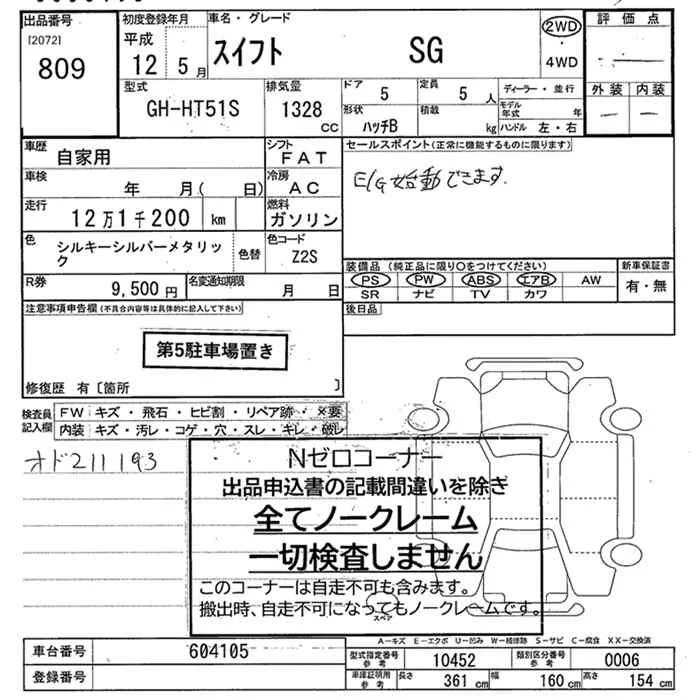 出品番号
[2072]
809
初度登録年月
平成
12 5 月
車名・グレード
スイフト SG
2WD
・
4WD
評価点
外装 内装
— —
型式
GH-HT51S
排気量
1328
cc
ドア
5
定員
5 人
形状
ハッチB
積載
kg
ディーラー・並行
モデル年式 年
ハンドル 左・右
車歴
自家用
シフト
FAT
車検
年 月( 日)
冷房
AC
走行
12万1千200 km
燃料
ガソリン
色
シルキーシルバーメタリッ
ク
色替
色コード
Z2S
R券
9,500 円
名変通知期限
月 日
セールスポイント(正常に機能するものに限ります)
E/G始動できます.
装備品 (純正品に限り○をつけてください)
PS PW ABS エアB AW
SR ナビ TV カワ
新車保証書
有・無
後日品
注意事項申告欄(不具合内容等は具体的に記入して下さい)
第5駐車場置き
修復歴 有〔箇所 〕
検査員
記入欄
FW キズ・飛石・ヒビ割・リペア跡・✕要
内装 キズ・汚レ・コゲ・穴・スレ・キレ・破レ
オド211193
Nゼロコーナー
出品申込書の記載間違いを除き
全てノークレーム
一切検査しません
このコーナーは自走不可も含みます。
搬出時、自走不可になってもノークレームです。
スペア
A—キズ E—エクボ U—凹み W—補修跡 S—サビ C—腐食 XX—交換済
車台番号
604105
登録番号
型式指定番号
参考
10452
類別区分番号
参考
0006
車庫証明用
参考
長さ 361 cm 幅 160 cm 高さ 154 cm